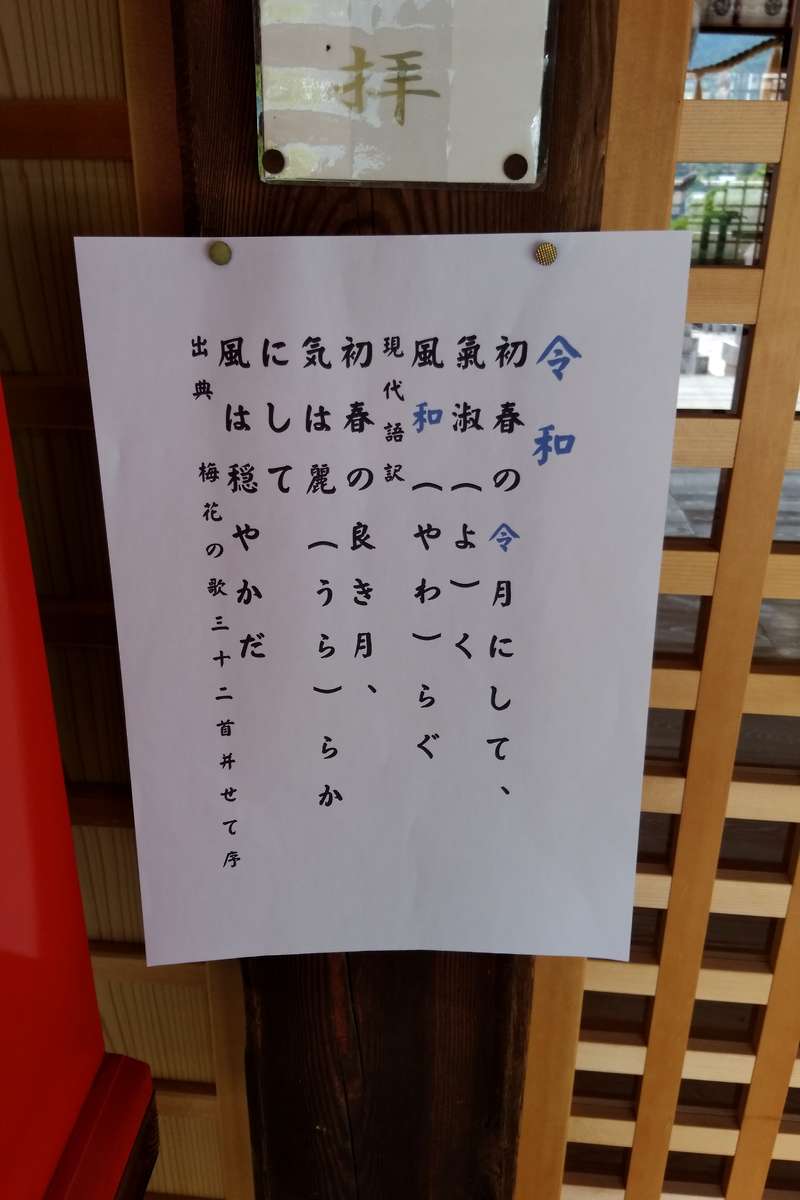 拝
令和
初春の令月にして、
氣淑(よ)く
風和(やわ)らぐ
現代語訳
初春の良き月、
気は麗(うら)らか
にして
風は穏やかだ
出典 梅花の歌三十二首并せて序